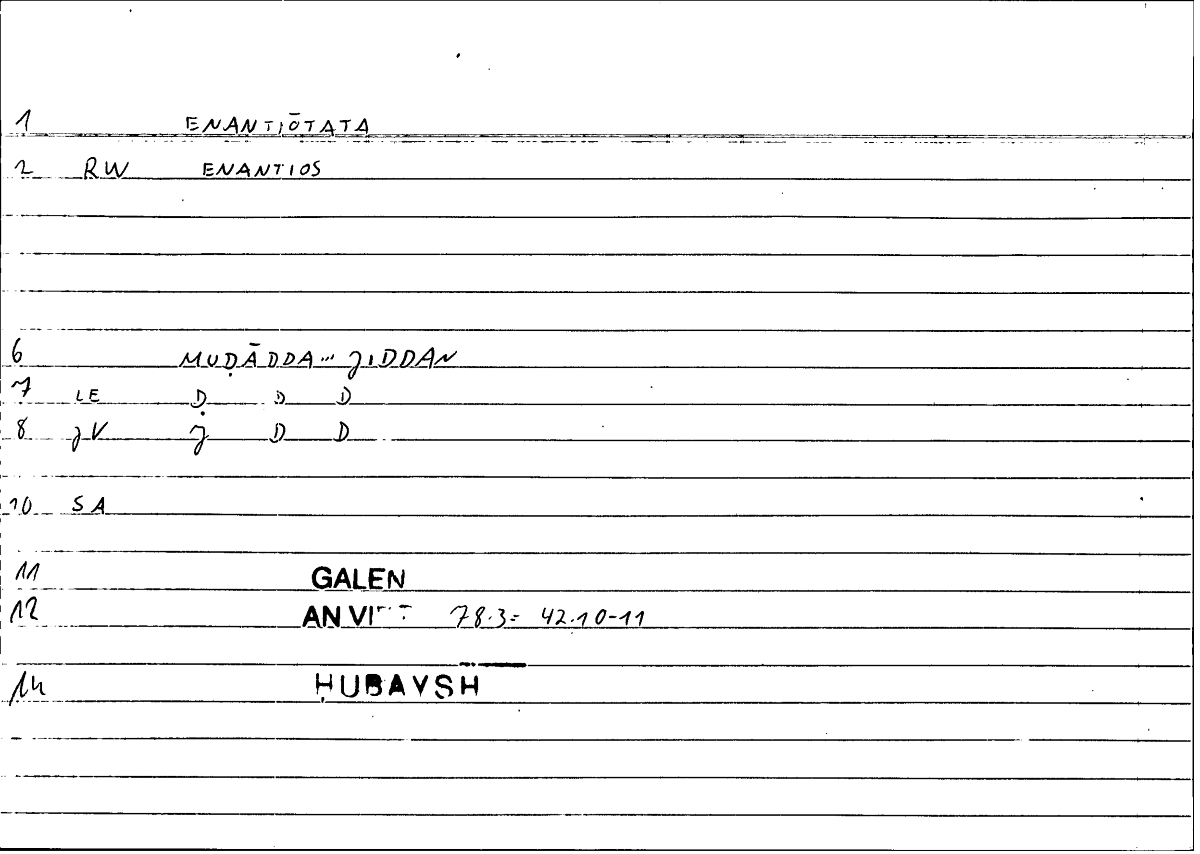 1 ENANTIŌTATA
2 RW ENANTIOS
6 MUḌĀDDA... JIDDAN
7 LE Ḍ D D
8 JV J D D
10 SA
11 GALEN
12 AN VI 78.3 = 42.10-11
14 ḤUBAYSH